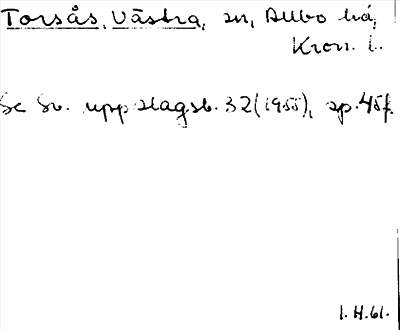 Torsås, Västra, sn, Allbo hd,
Kron. l.
Se Sv. uppslagsb. 32 (1955), sp. 45f.
1.H.61.